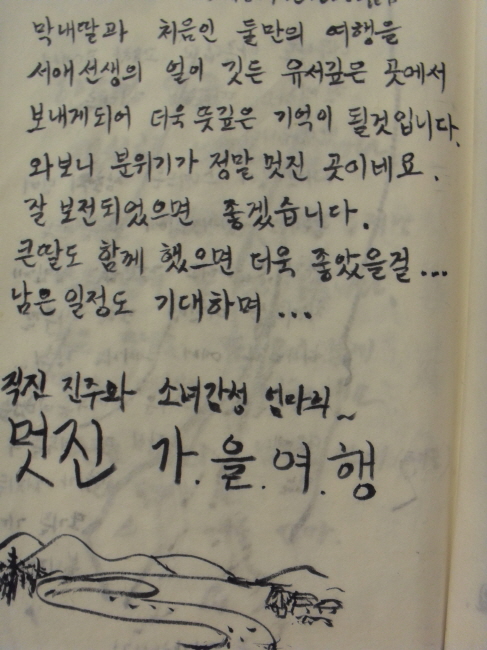 막내딸과 처음인 둘만의 여행을
서애선생의 얼이 깃든 유서깊은 곳에서
보내게되어 더욱 뜻깊은 기억이 될것입니다.
와보니 분위기가 정말 멋진 곳이네요.
잘 보전되었으면 좋겠습니다.
큰딸도 함께 했으면 더욱 좋았을걸...
남은일정도 기대하며...
직진 진주와 소녀감성 엄마의~
멋진 가.을.여.행